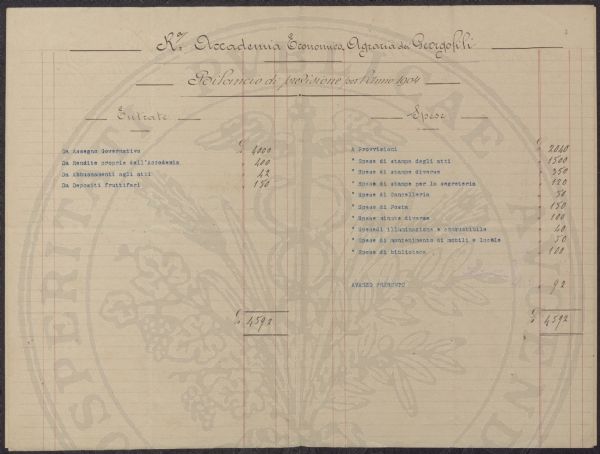 R.ª Accademia Economico Agraria dei Georgofili
Bilancio di previsione per l'anno 1904
Entrate
Da Assegno Governativo £ 4000
Da Rendite proprie dell'Accademia " 400
Da Abbuonamenti agli atti " 42
Da Depositi fruttiferi " 150
£ 4592
Spese
A Provvisioni £ 2040
" Spese di stampa degli atti " 1500
" Spese di stampe diverse " 350
" Spese di stampe per la segreteria " 120
" Spese di Cancelleria " 50
" Spese di Posta " 150
" Spese minute diverse " 100
" Spese di illuminazione e combustibile " 40
" Spese di mantenimento di mobili e locale " 50
" Spese di biblioteca " 100
AVANZO PRESUNTO " 92
£ 4592
PROSPERITATI PUBLICAE AUGENDAE